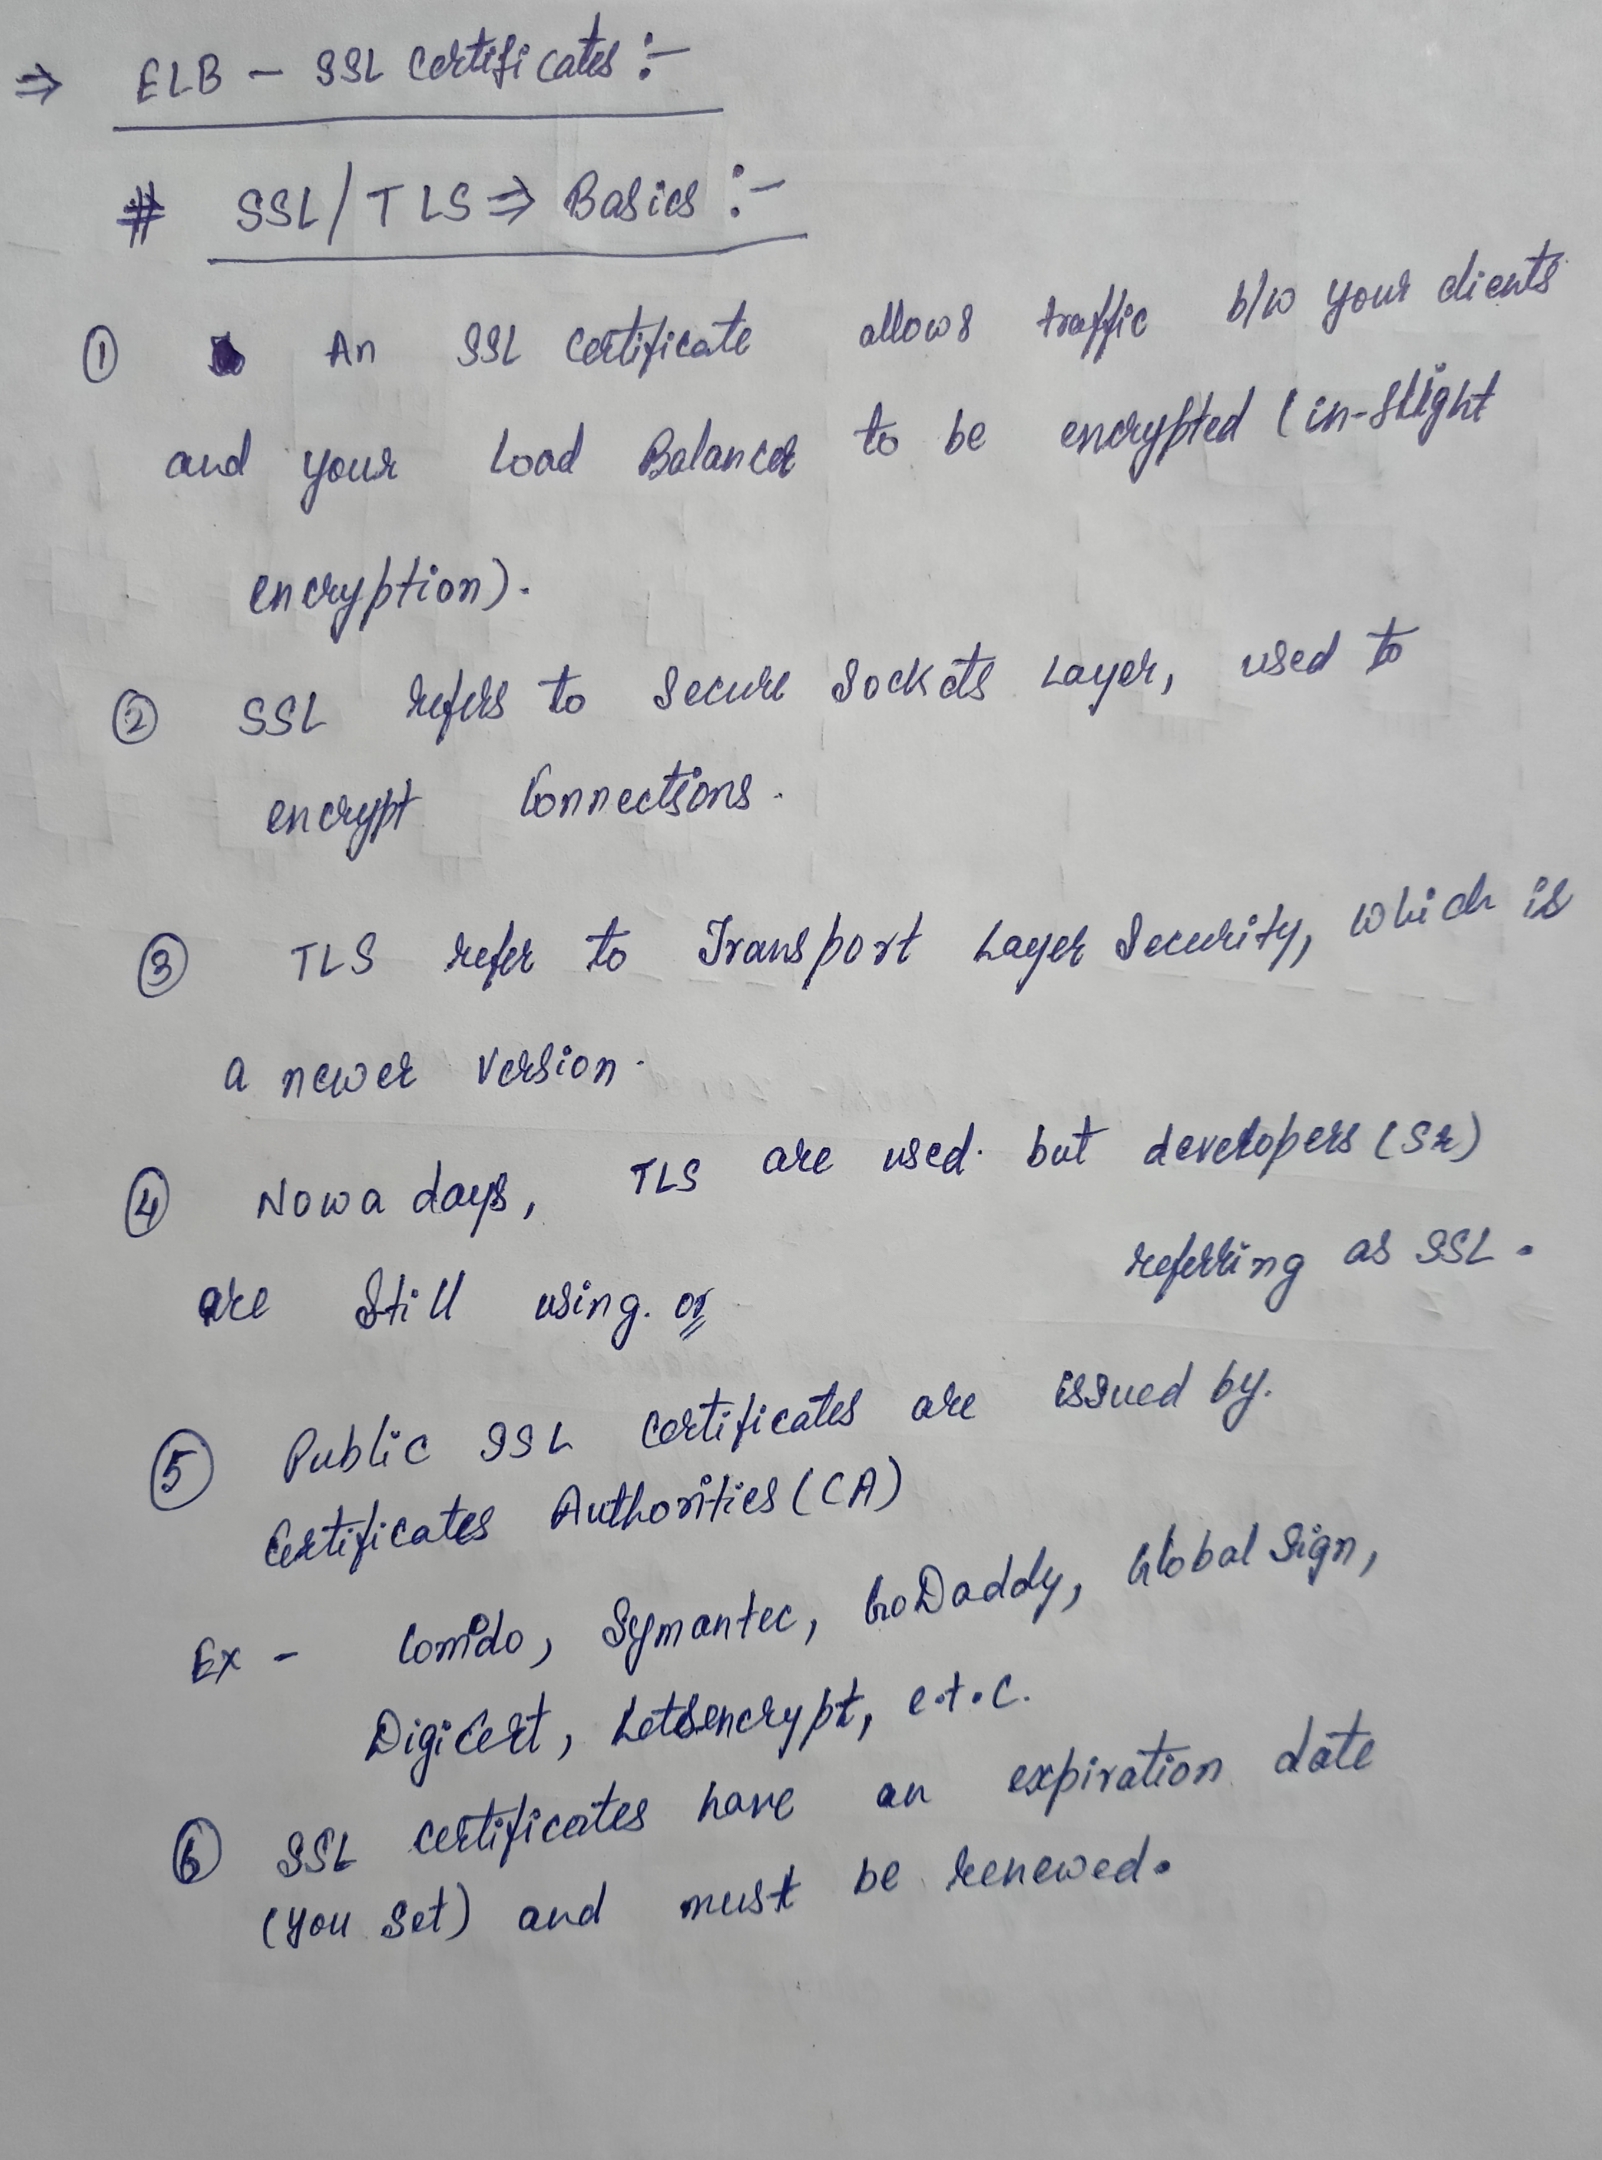 ⇒ ELB - SSL Certificates :-
# SSL/TLS ⇒ Basics :-
① An SSL Certificate allows traffic b/w your clients
and your Load Balancer to be encrypted (in-flight
encryption).
② SSL refers to Secure Sockets Layer, used to
encrypt Connections.
③ TLS refer to Transport Layer Security, which is
a newer version.
④ Nowa days, TLS are used. but developers (Sr)
are still using. or referring as SSL.
⑤ Public SSL Certificates are issued by.
Certificates Authorities (CA)
Ex - Comodo, Symantec, GoDaddy, Global Sign,
DigiCert, Letsencrypt, e.t.c.
⑥ SSL certificates have an expiration date
(you set) and must be renewed.